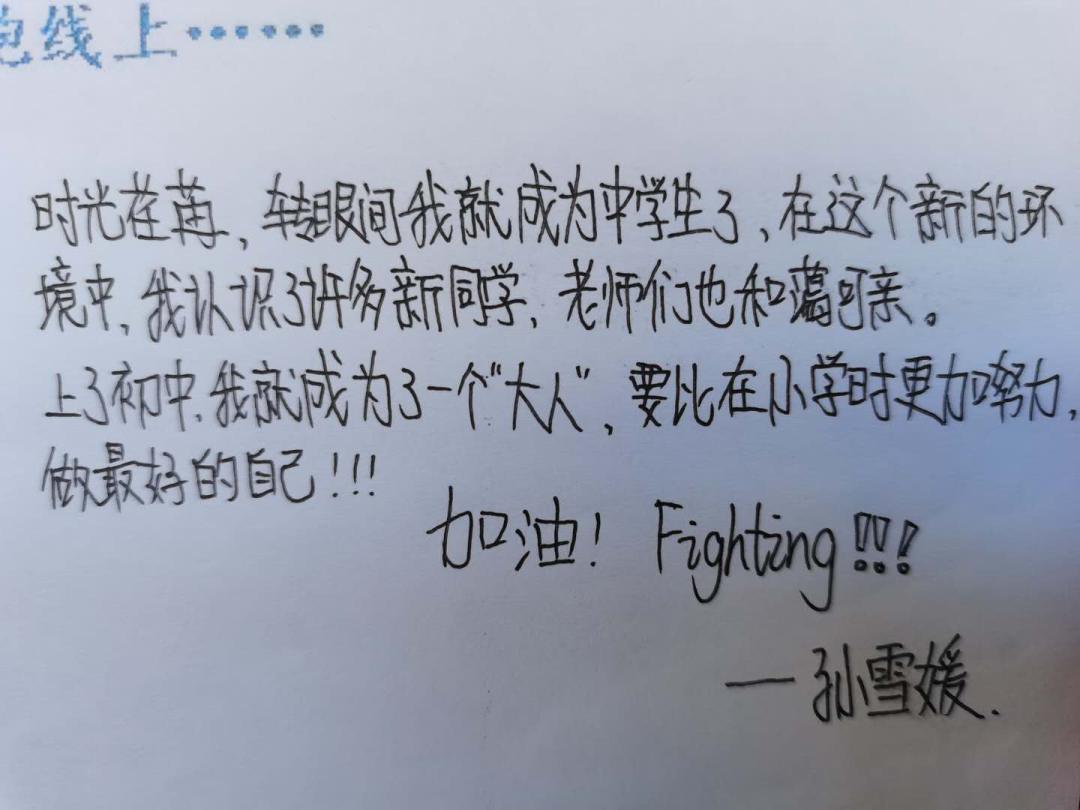 线上……
时光荏苒，转眼间我就成为中学生了，在这个新的环
境中，我认识了许多新同学，老师们也和蔼可亲。
上了初中，我就成为了一个“大人”，要比在小学时更加努力，
做最好的自己！！！
加油！ Fighting!!!
— 孙雪媛.